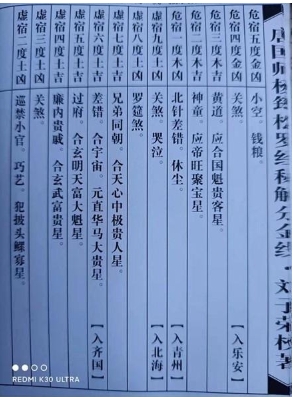 唐国师杨筠松罗经秘解分金线·刘
危宿五度金凶 小空。钱粮。
危宿四度金凶 关煞。 【入乐安
危宿三度木吉 黄道。应合国魁贵客星。
危宿二度木吉 神童。应帝旺聚宝星。
危宿一度木凶 北针差错。休尘。 【入青州
虚宿九度土凶 关煞。哭泣。 【入北海
虚宿八度土凶 罗煞。
虚宿七度土吉 兄弟同朝。合天心中极贵人星。
虚宿六度土吉 差错。合宇宙。元直华马大贵星。 【入齐国
虚宿五度土吉 过府。合玄明天富大魁星。
虚宿四度土吉 廉内贵戚。合玄武富贵星。
虚宿三度土凶 关煞。
虚宿二度土凶 巡禁小官。巧艺。犯披头鳏寡星。
REDMI K30 ULTRA